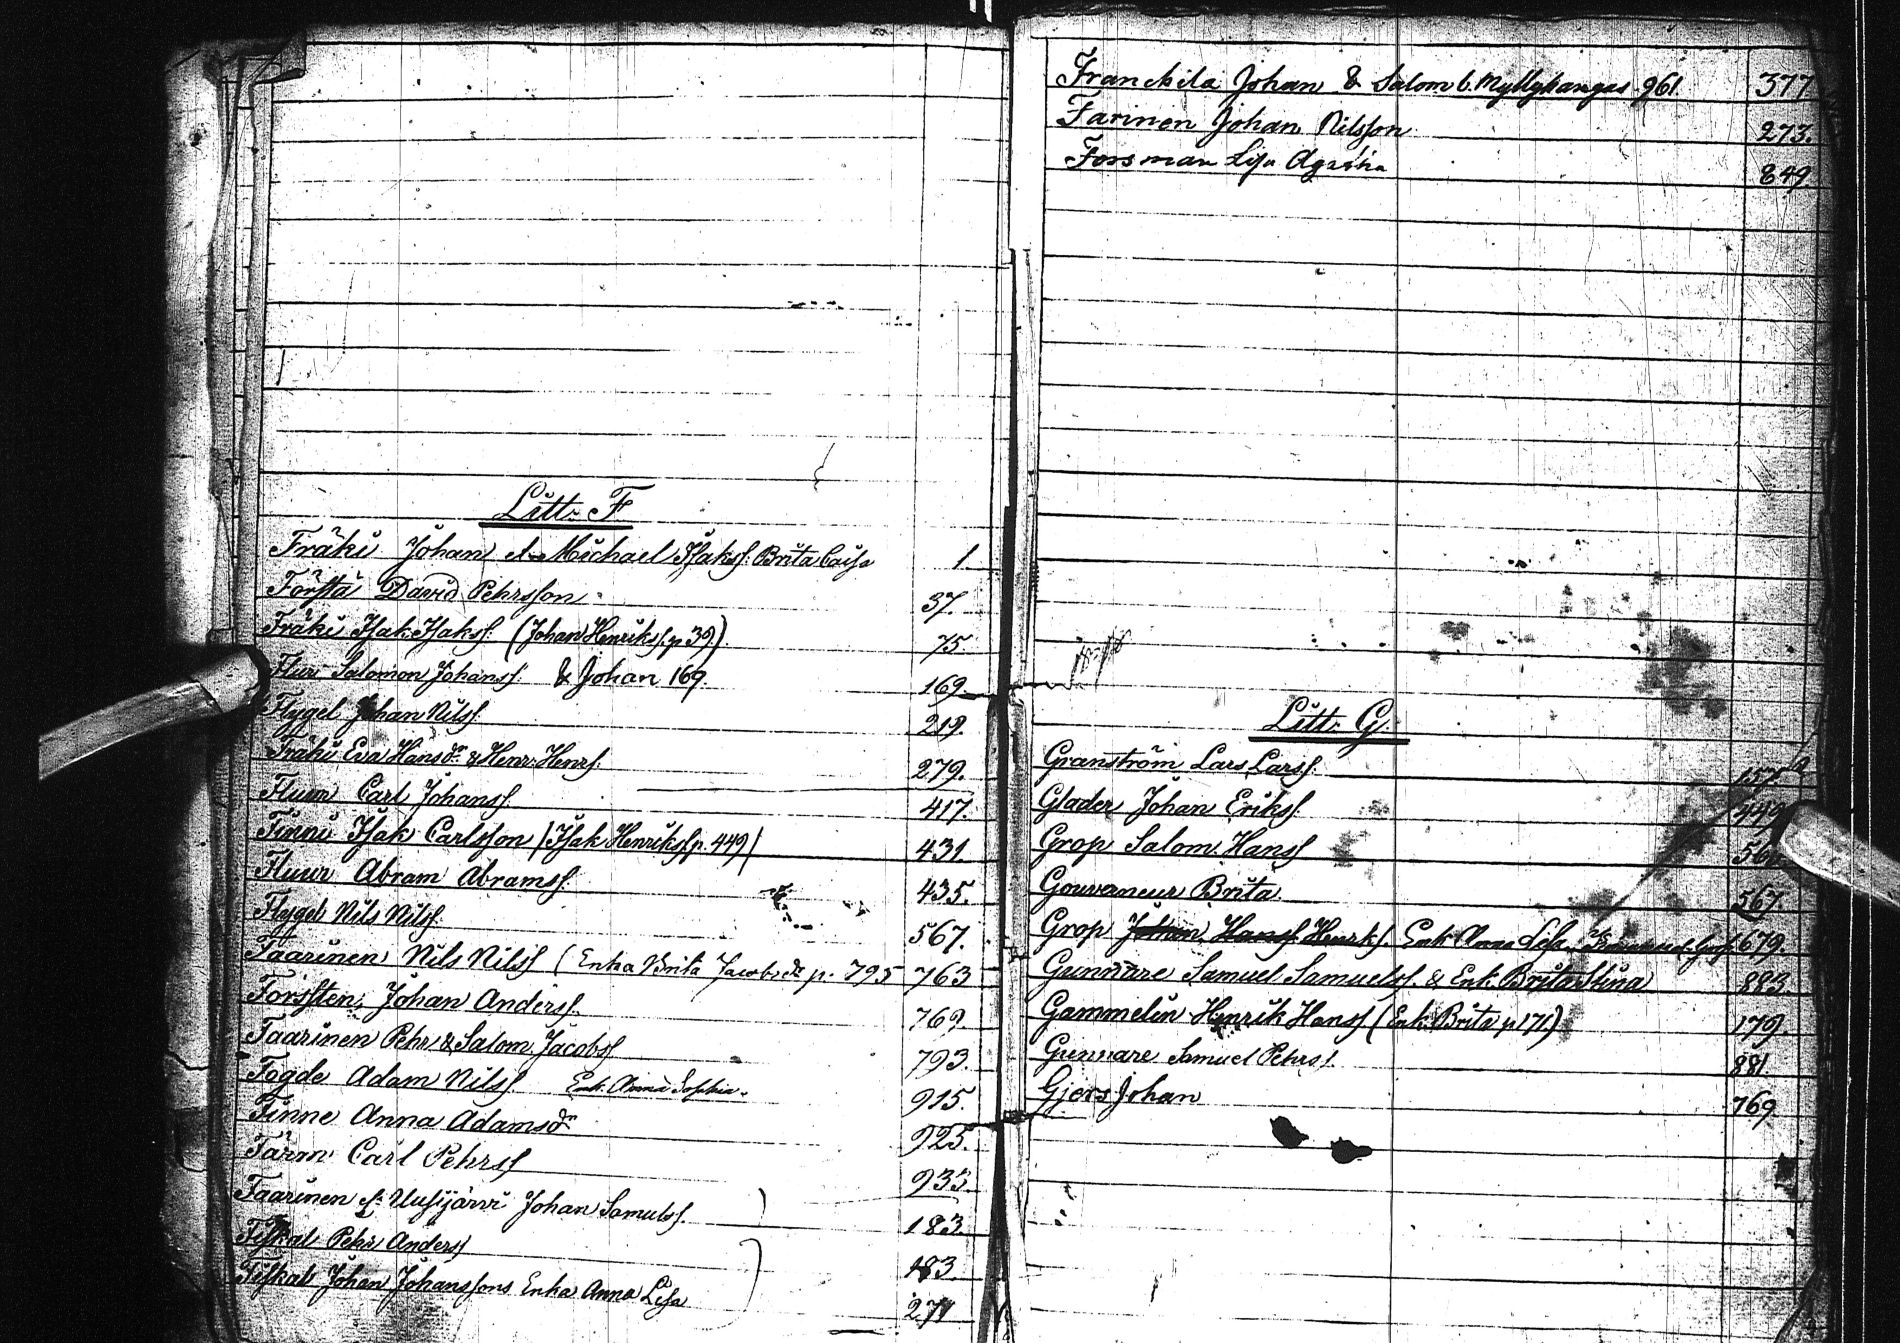 Litt. F
Fräki Johan el. Michael Isakss. Brita Caisa 1.
Förstä David Pehrsson 37.
Fräki Isak Isakss. (Johan Henrikss. p 39.) 75.
Flur Salomon Johanss. & Johan 169. 169.
Flygel Johan Nilss. 219.
Fräki Eva Hansdr. & Henr. Henrs. 279.
Flurr Carl Johanss. 417.
Finni Isak Carlsson /Isak Henrikss. p. 449/ 431.
Fluur Abram Abramss. 435.
Flygel Nils Nilss. 567.
Taarinen Nils Nilss (Enka Brita Jacobsdr p. 795 763
Forssten Johan Anderss. 769
Taarinen Pehr & Salom. Jacobss 793.
Fogde Adam Nilss Enk. Anna Sophia. 915.
Finne Anna Adamsdr 925.
Färm Carl Pehrss 933.
Faarinen f. Uusijärvi Johan Samulss. 183.
Fiskal Pehr Anders 183
Fiskal Johan Johanssons Enka Anna Lisa 271
Franckila Johan & Salom b. Myllykangas 961. 377
Farinen Johan Nilsson 273.
Forsman Lisa Agatha 849.
Litt. G.
Granström Lars Larss. 157
Glader Johan Erikss. 449
Grop Salom. Hanss
Gouvaneur Brita. 567.
Grop Johan Hanss Henrks. Enk. Anna Lisa 679.
Gunnare Samuel Samuelss. & Enk. Brita Stina 883.
Gammelin Henrik Hanss (Enk. Brita p 171) 179
Gunnare Samuel Pehrss. 881.
Gjers Johan 769